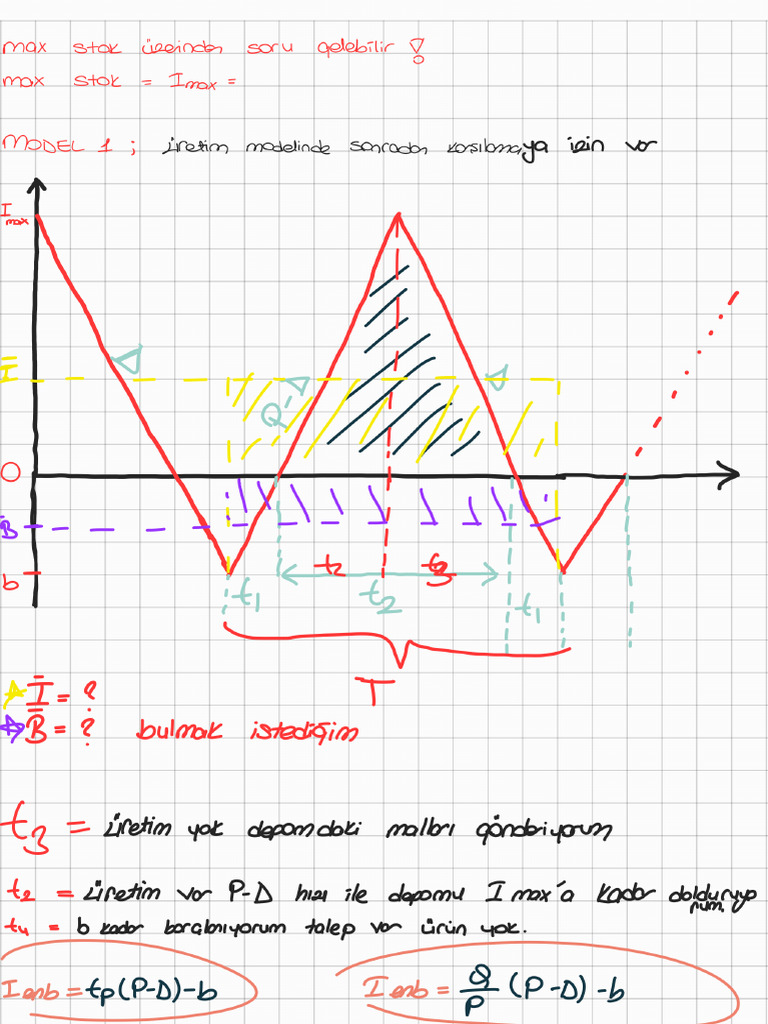 max stok üzerinden soru gelebilir !
max stok = Imax =
MODEL 1 ; üretim modelinde sonradan karşılamaya izin var
Imax
Ī
Q-D
0
B̄
b
t2
t3
t1
t2
t1
T
Ī = ?
B̄ = ? bulmak istediğim
t3 = üretim yok depomdaki malları gönderiyorum
t2 = üretim var P-D hızı ile depomu I max'a kadar dolduruyo
rum.
t4 = b kadar borçlanıyorum talep var ürün yok.
Ienb = tp(P-D)-b
Ienb = Q/P (P-D) -b